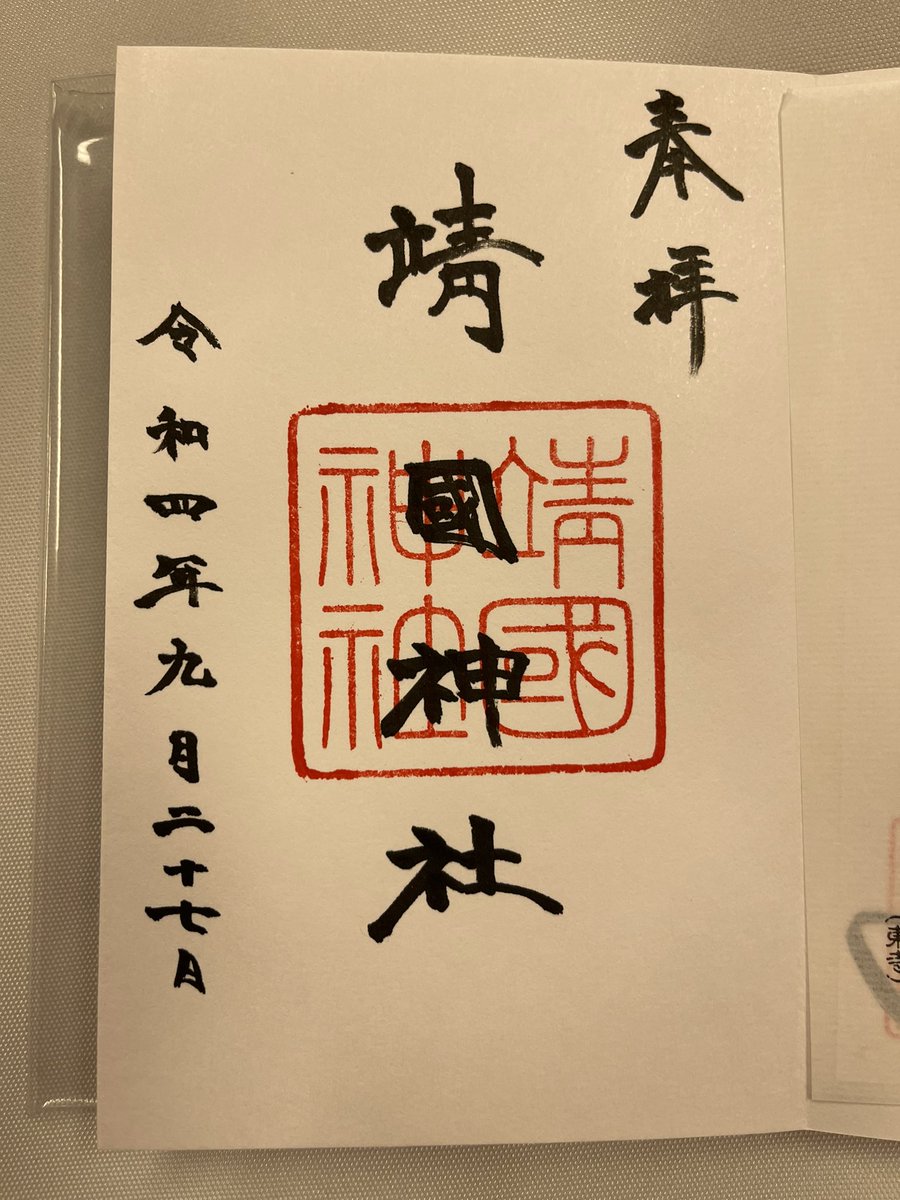 奉拝
靖國神社
靖國
神社
令和四年九月二十七日
(東寺)